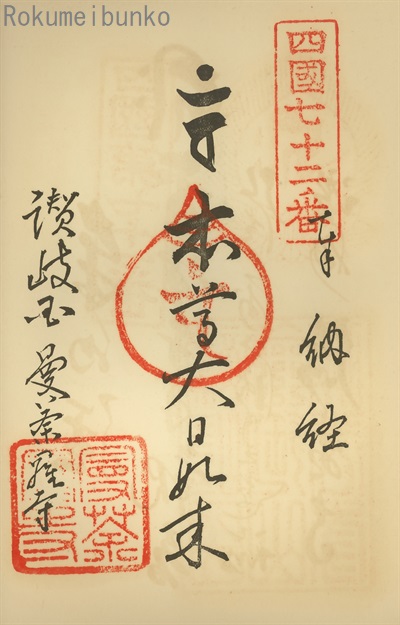 Rokumeibunko
四國七十二番
奉納経
本尊大日如来
讃岐国曼荼羅寺
曼荼
羅寺